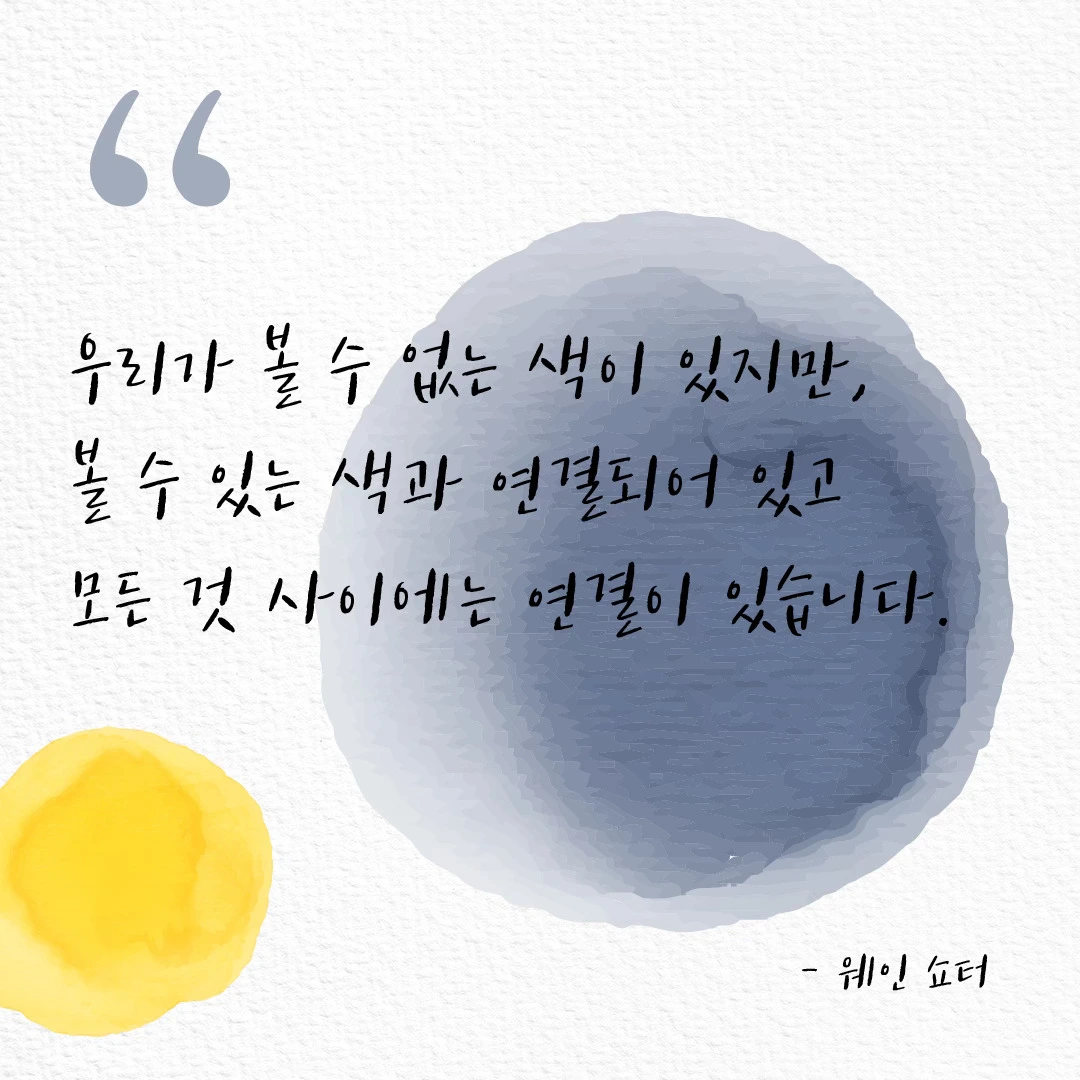 “
우리가 볼 수 없는 색이 있지만,
볼 수 있는 색과 연결되어 있고
모든 것 사이에는 연결이 있습니다.
- 웨인 쇼터